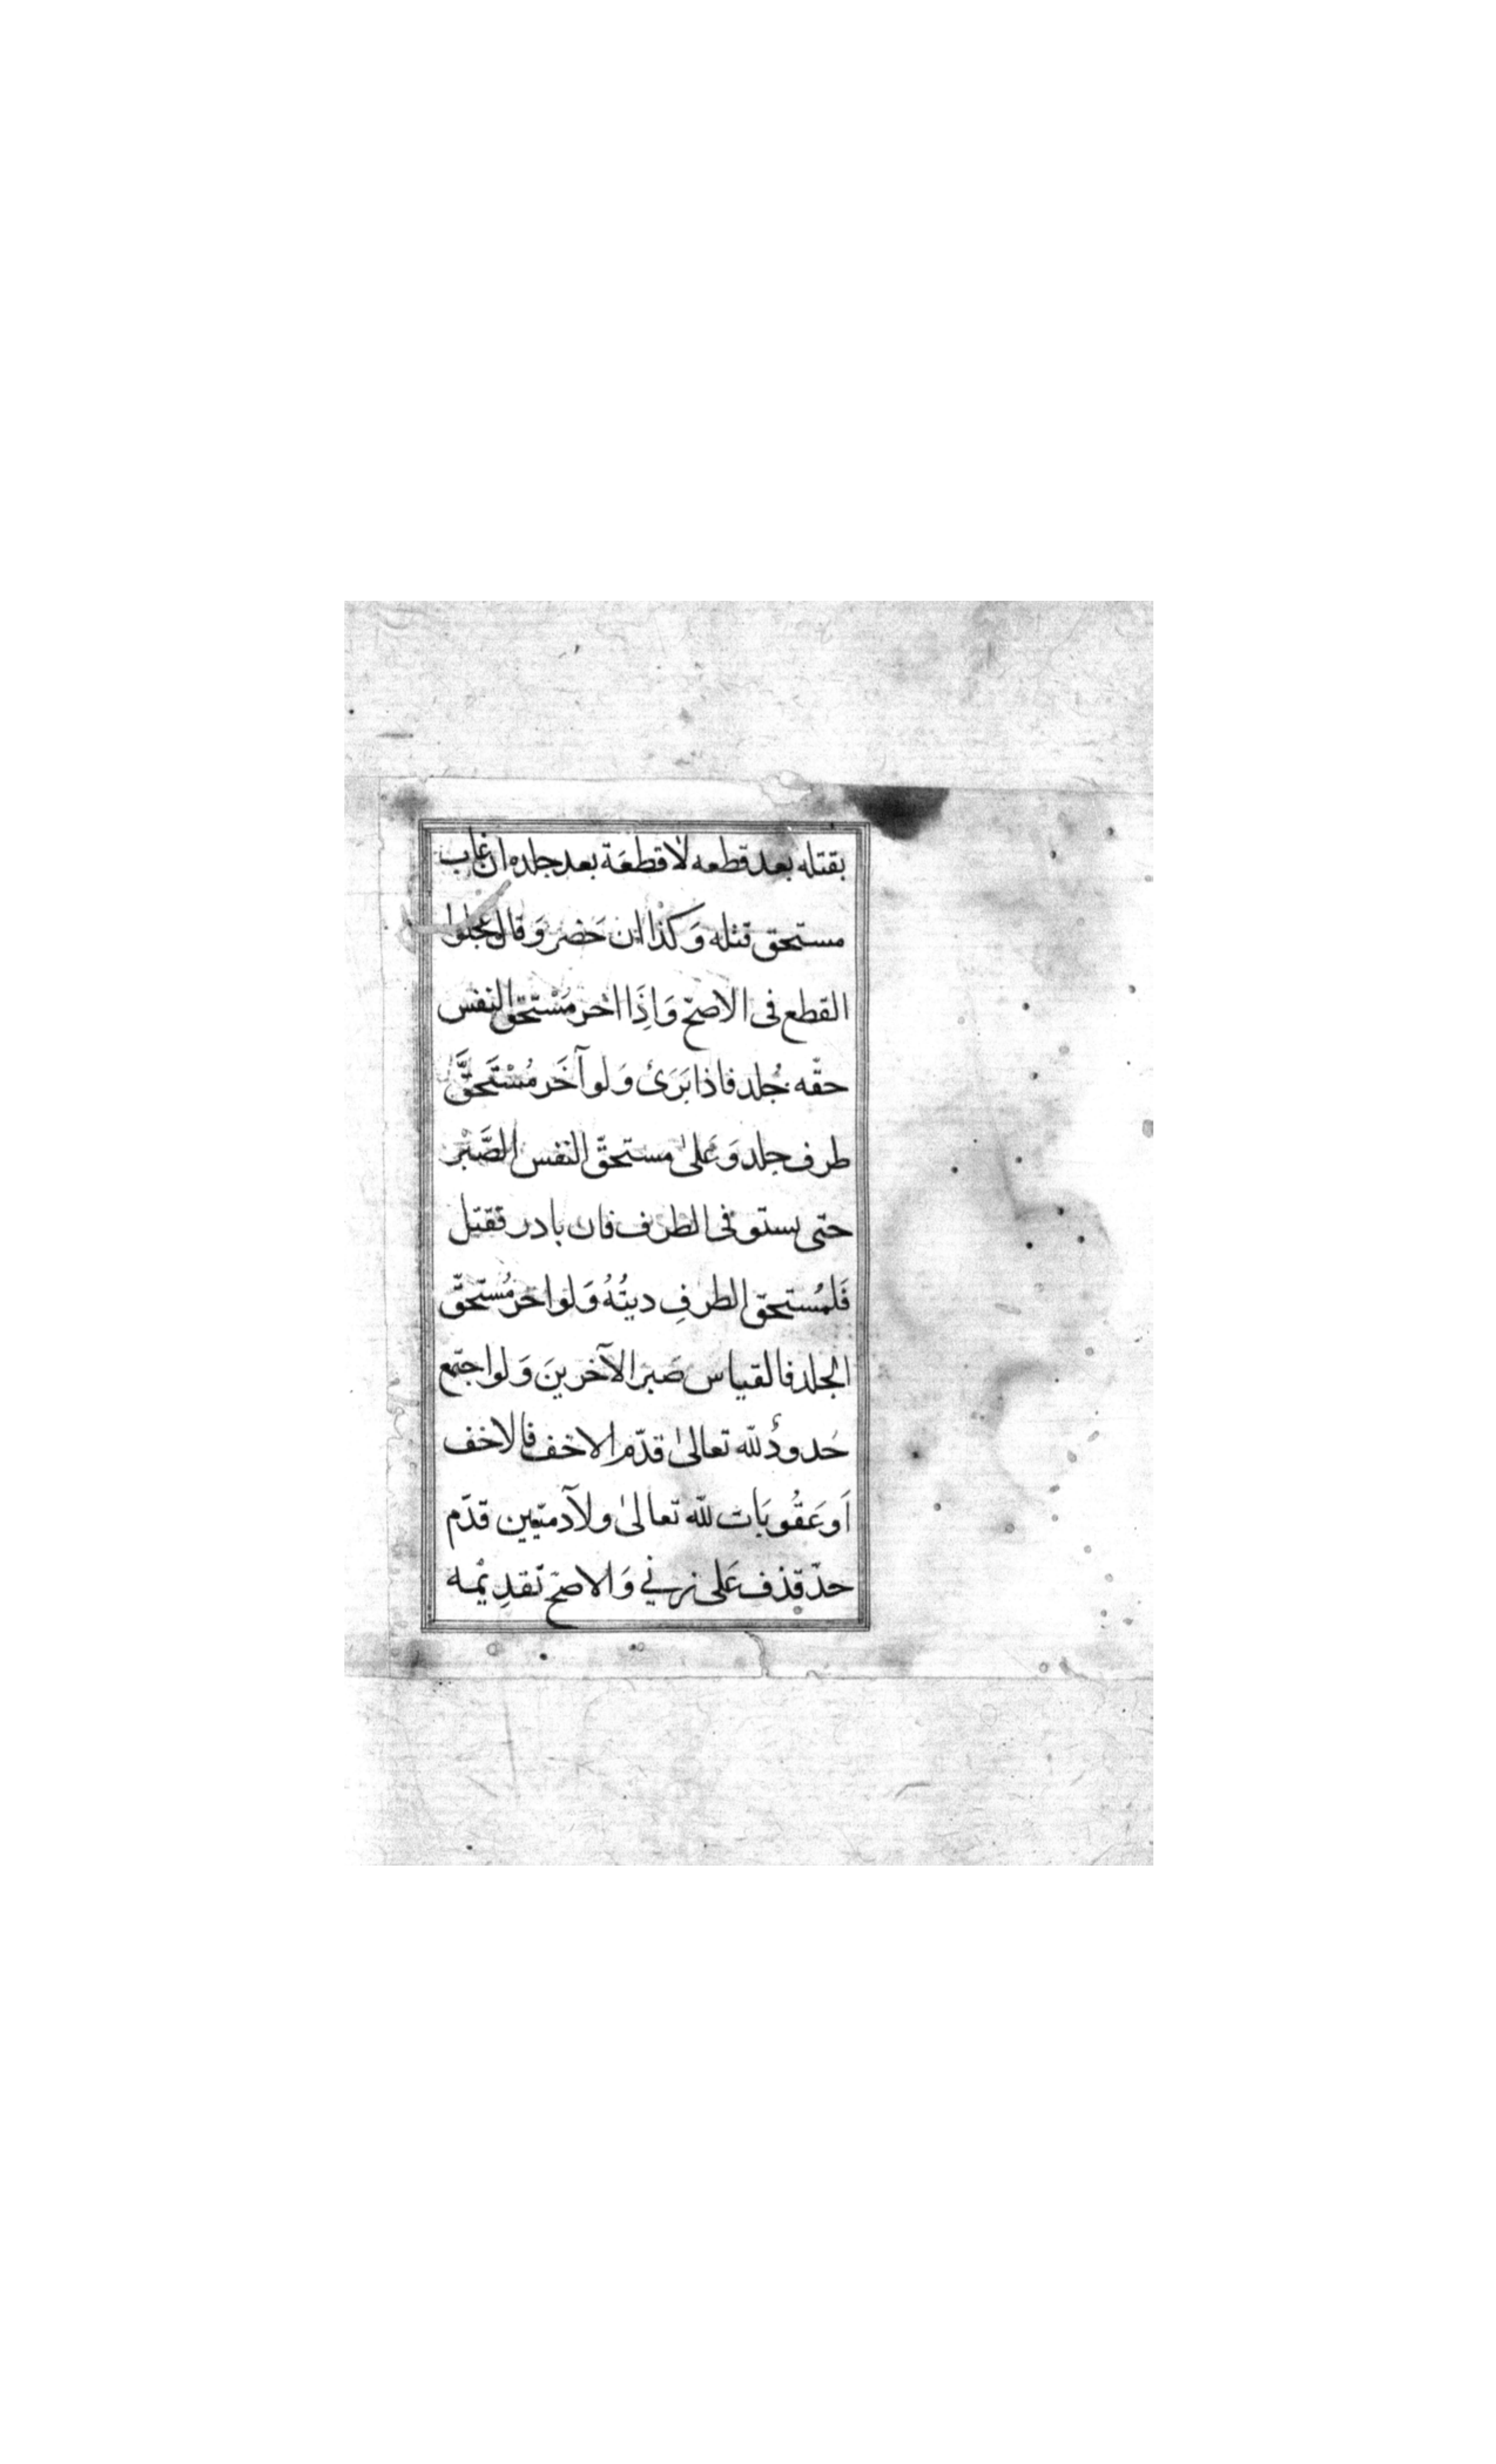 بقتله بعد قطعه لا قطعَة بعد جلده ان غاب
مستحق قتله وَكذا ان حَضر وَقال عجلوا
القطع فى الاصحّ وَاِذَا اخر مُسْتحق النفس
حقّه جُلد فاذا بَرَئ وَلو آخَر مُسْتَحقَّ
طرف جلد وَعَلىٰ مستحقّ النفس الصَّبْر
حتى يستوفى الطرف فان بادر فقتل
فَلمُستحقّ الطرفِ ديتُهُ وَلو اخر مُستحقّ
الجلد فالقياس صَبر الآخرينَ وَلو اجتمع
حَدودُ لله تعالىٰ قدّم الاخف فالاخف
اَو عَقُوبَات لله تعالىٰ ولآدمتيين قدّم
حدّ قذف عَلى زنى وَالاصحّ تقدِيْمه